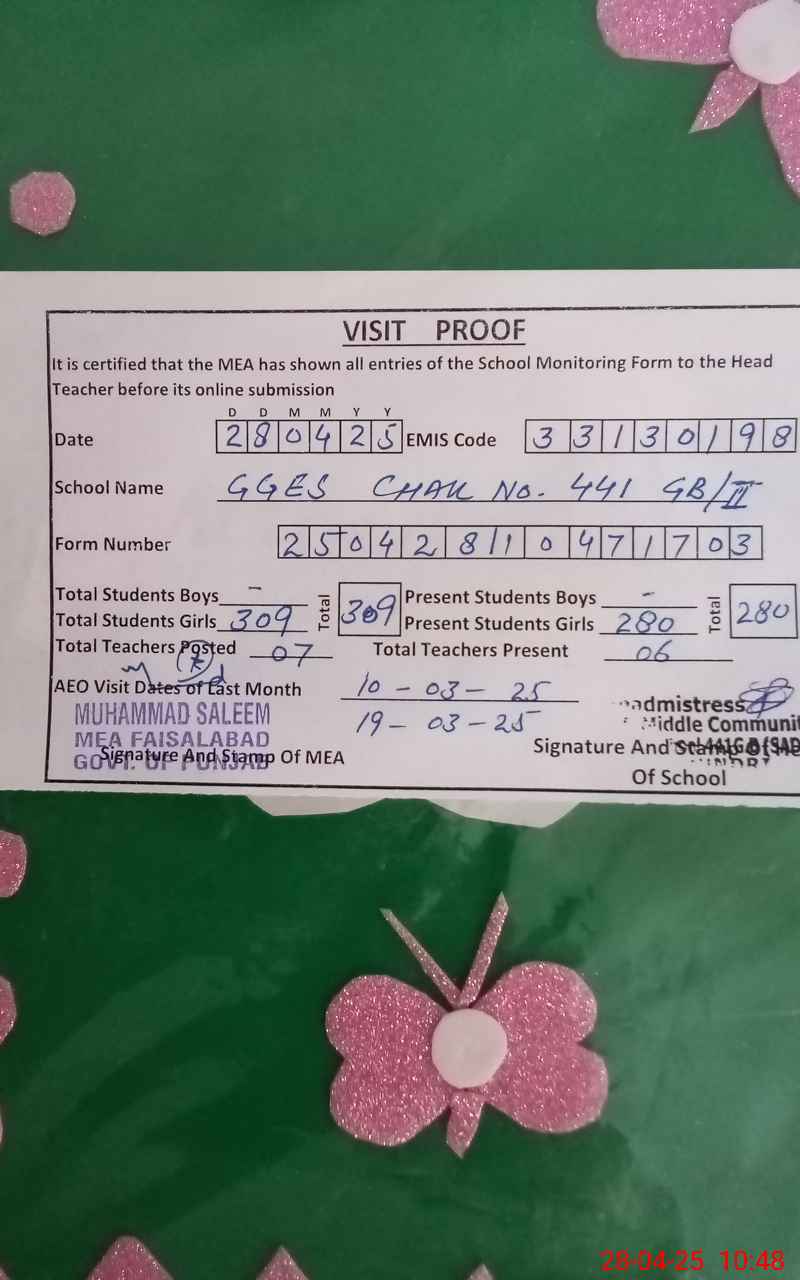 VISIT PROOF
It is certified that the MEA has shown all entries of the School Monitoring Form to the Head
Teacher before its online submission
D D M M Y Y
Date 280425 EMIS Code 33130198
School Name GGES CHAK No. 441 GB/II
Form Number 250428110471703
Total Students Boys - Total 309 Present Students Boys - Total 280
Total Students Girls 309 Present Students Girls 280
Total Teachers Posted 07 Total Teachers Present 06
AEO Visit Dates of Last Month 10-03-25
19-03-25
MUHAMMAD SALEEM
MEA FAISALABAD
GOVT. OF PUNJAB
Signature And Stamp Of MEA
Middle
Signature And Stamp Of
Of School
28-04-25 10:48